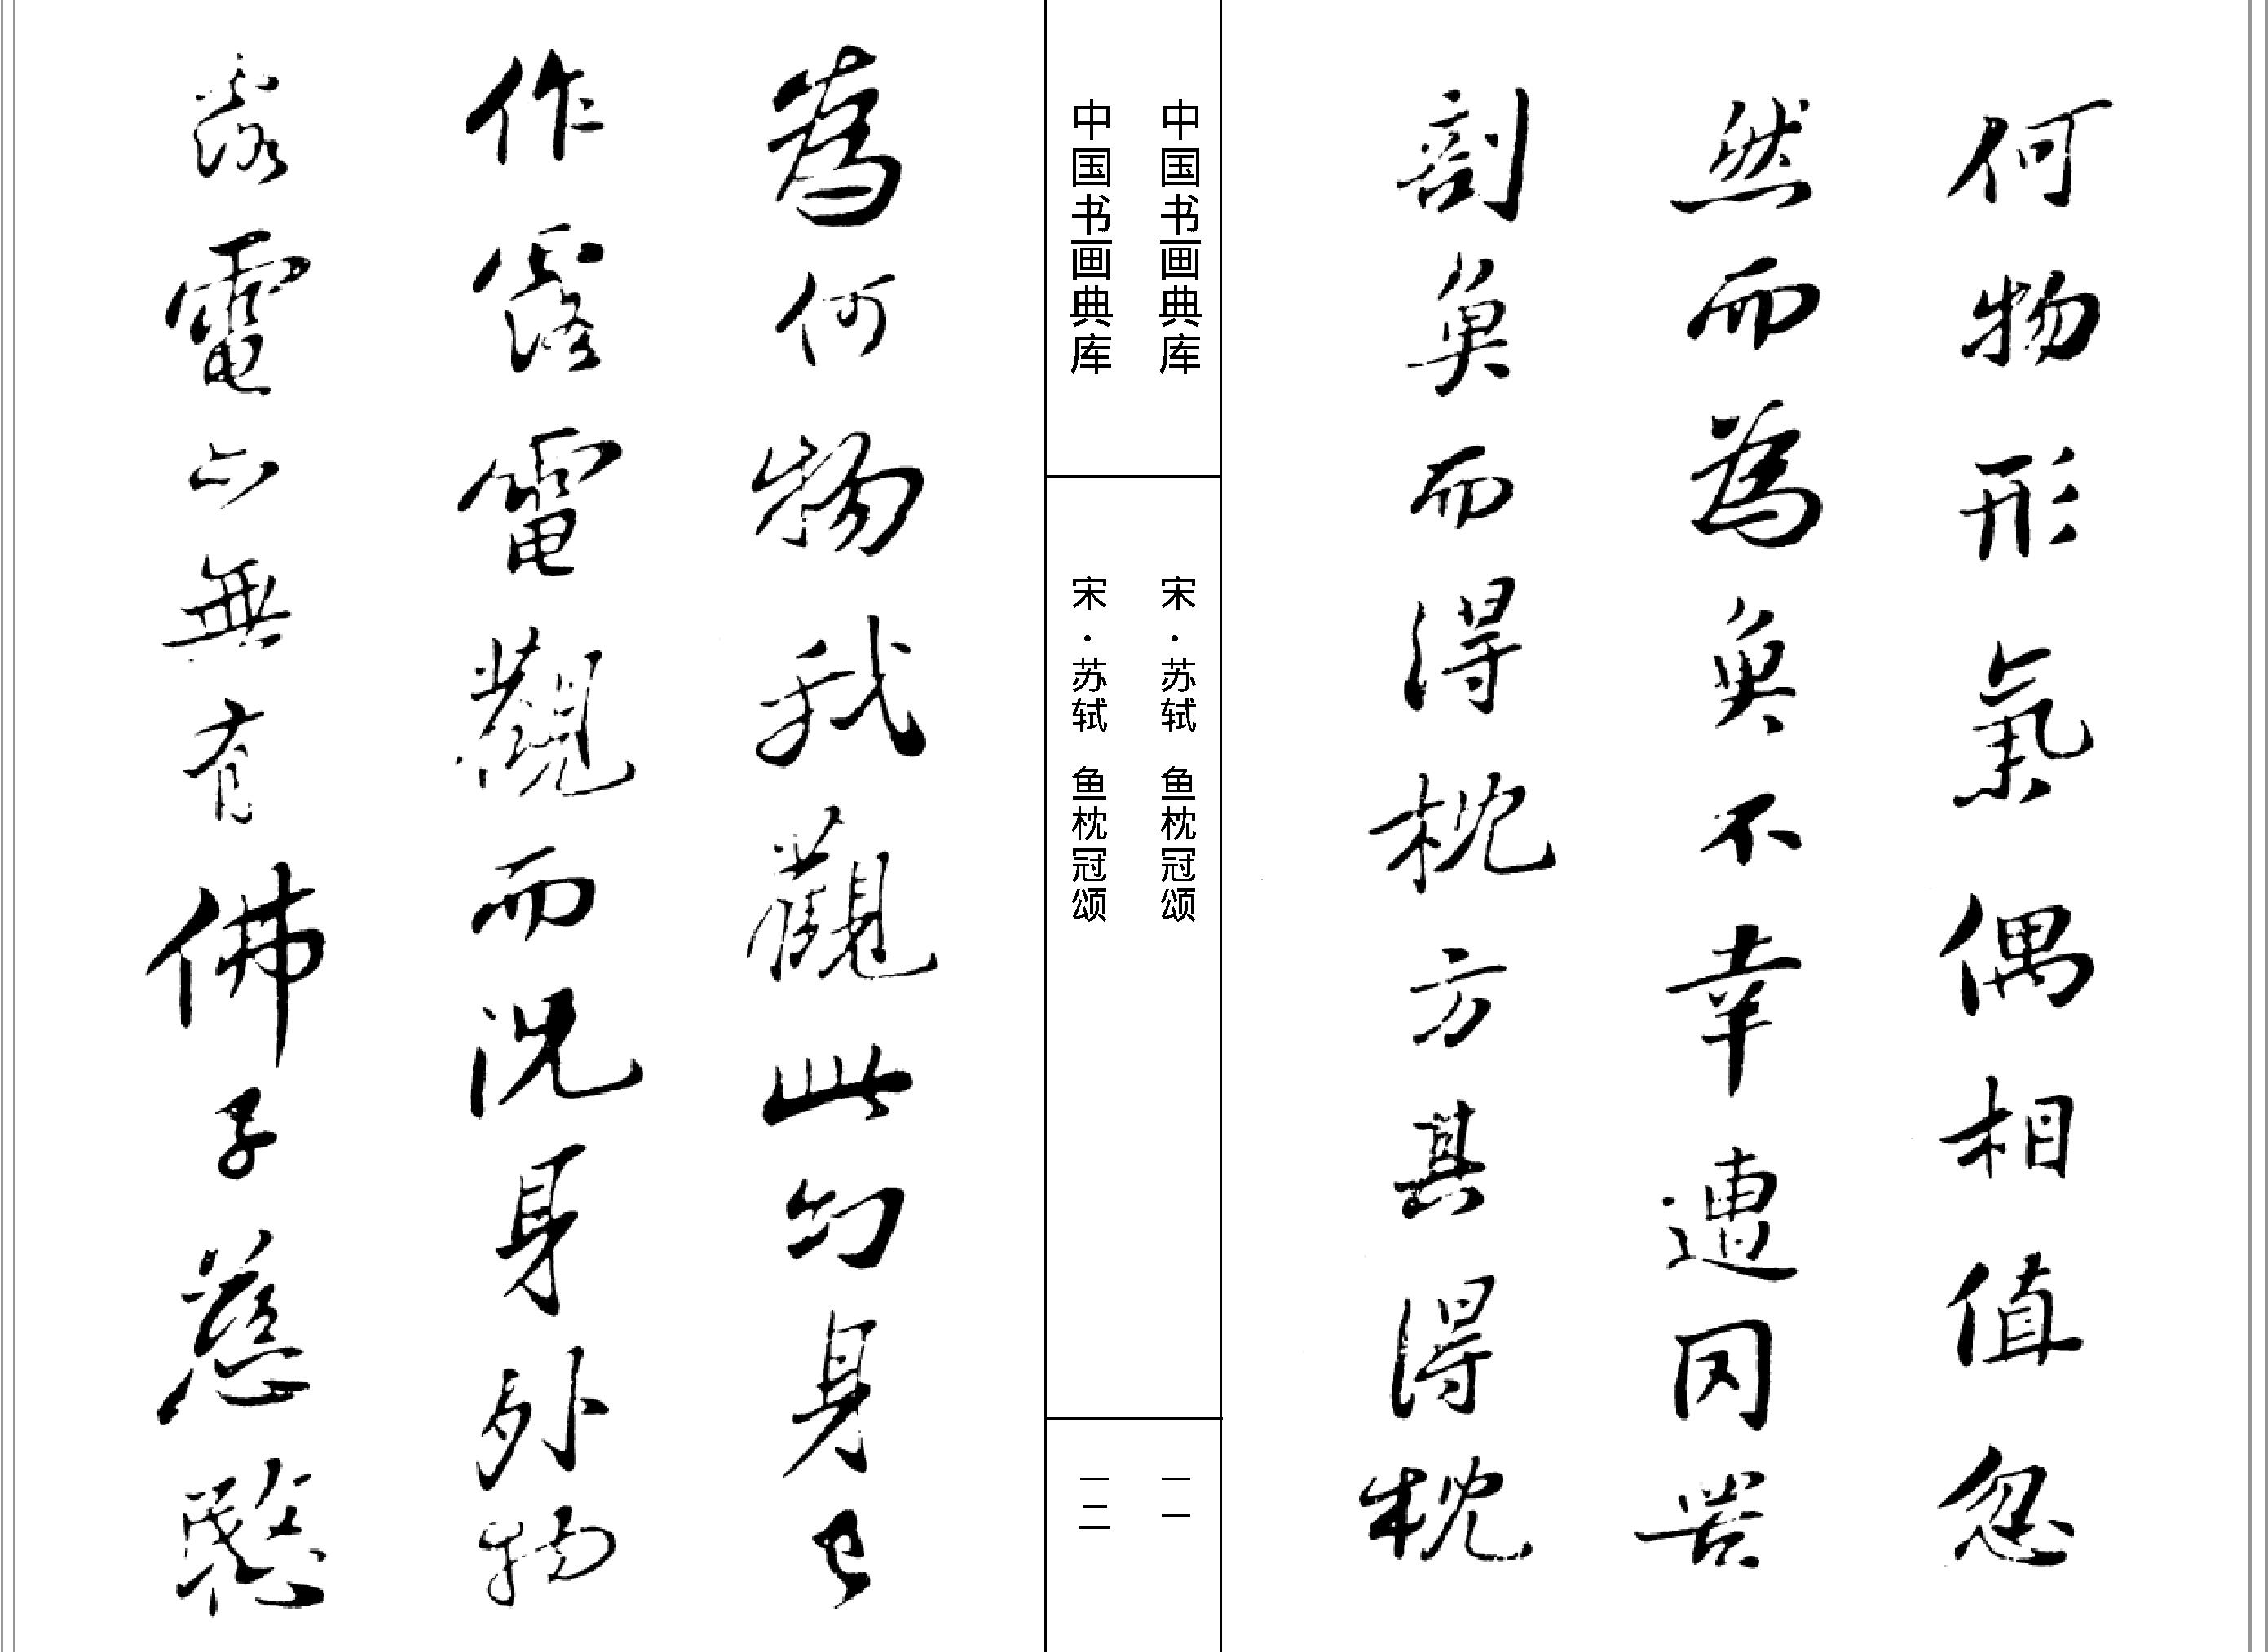 何物形氣偶相值忽
然而為魚不幸遭网罟
剖魚而得枕方其得枕
中国书画典库 宋·苏轼 鱼枕冠颂 一一
中国书画典库 宋·苏轼 鱼枕冠颂 一二
為何物我觀此幻身已
作露電觀而況身外物
露電亦無有佛子慈愍